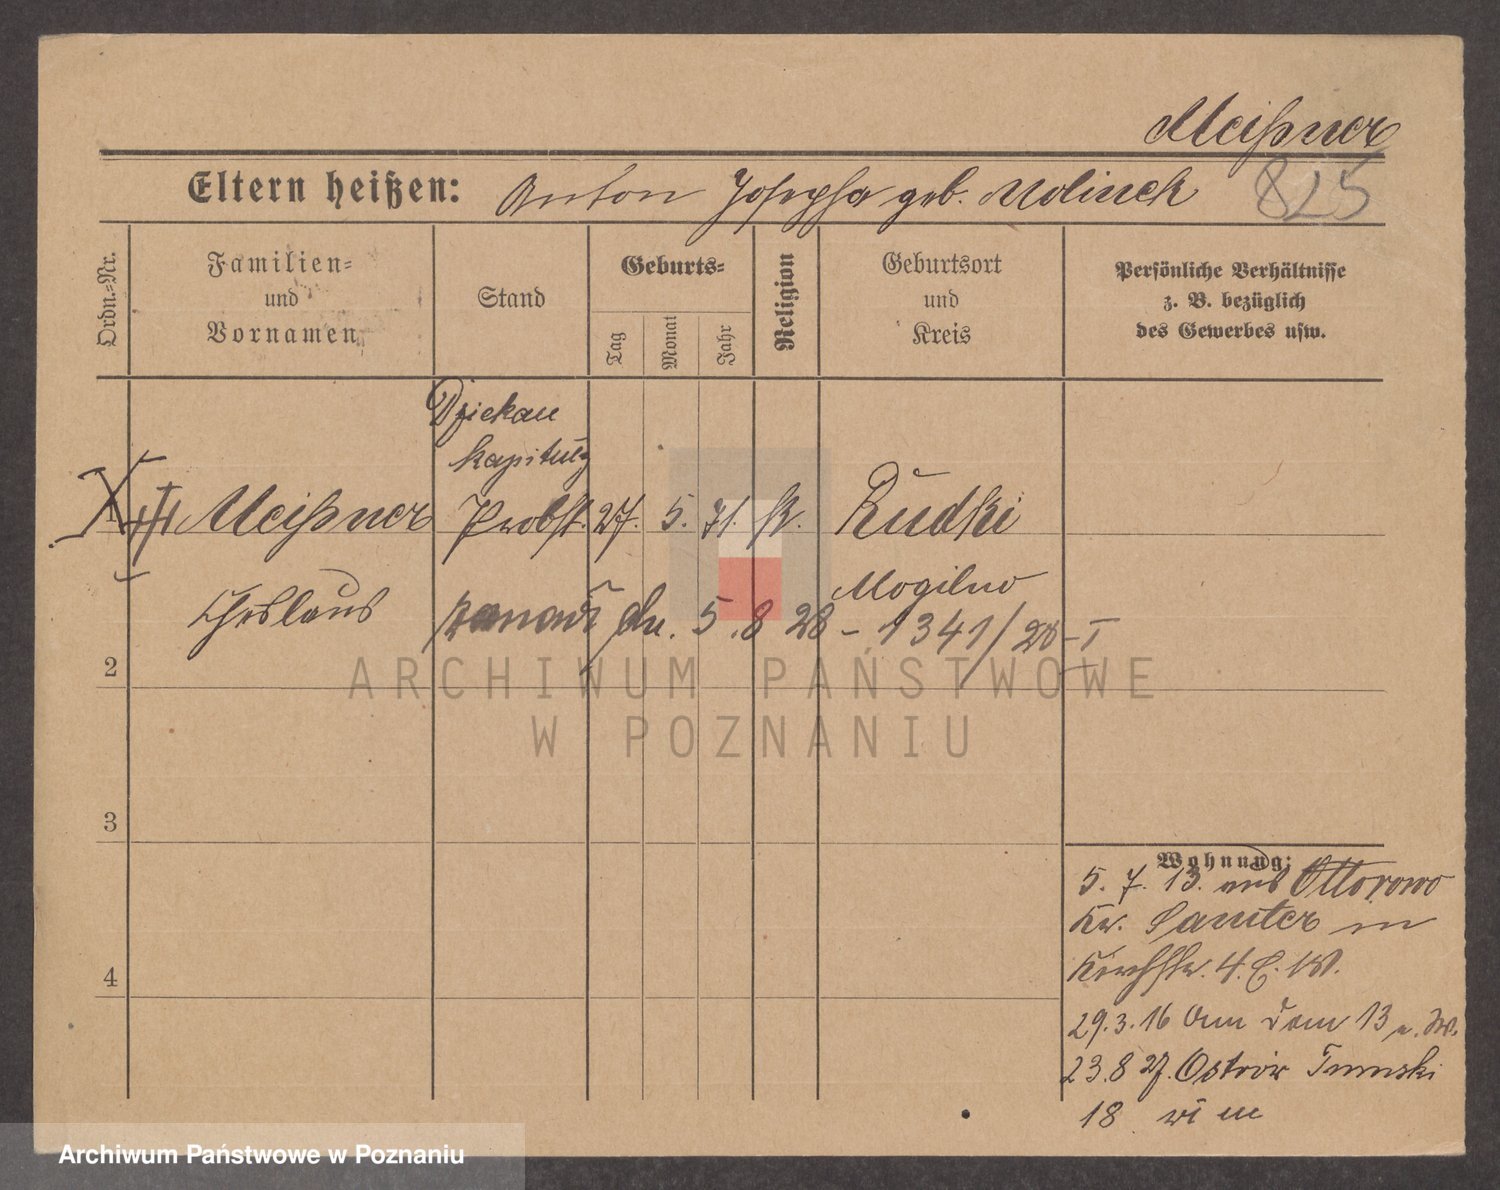 Meißner
Eltern heißen: Anton Josepha geb. Molinek 825
Ordn.-Nr.
Familien-
und
Vornamen
Stand
Geburts-
Tag
Monat
Jahr
Religion
Geburtsort
und
Kreis
Persönliche Verhältnisse
z. B. bezüglich
des Gewerbes usw.
Dziekan
kapituły
1 Meißner Probst. 27. 5. 71. k. Rudki
Mogilno
Cheslaus
dn. 5.8 28 - 1341/28-I
2
3
4
Wohnung:
5. 7. 13. aus Ottorowo
Kr. Samter in
Kirchstr. 4.
29.3.16 Am Dom 13
23.8 27. Ostrów Tumski
18
ARCHIWUM PAŃSTWOWE
W POZNANIU
Archiwum Państwowe w Poznaniu